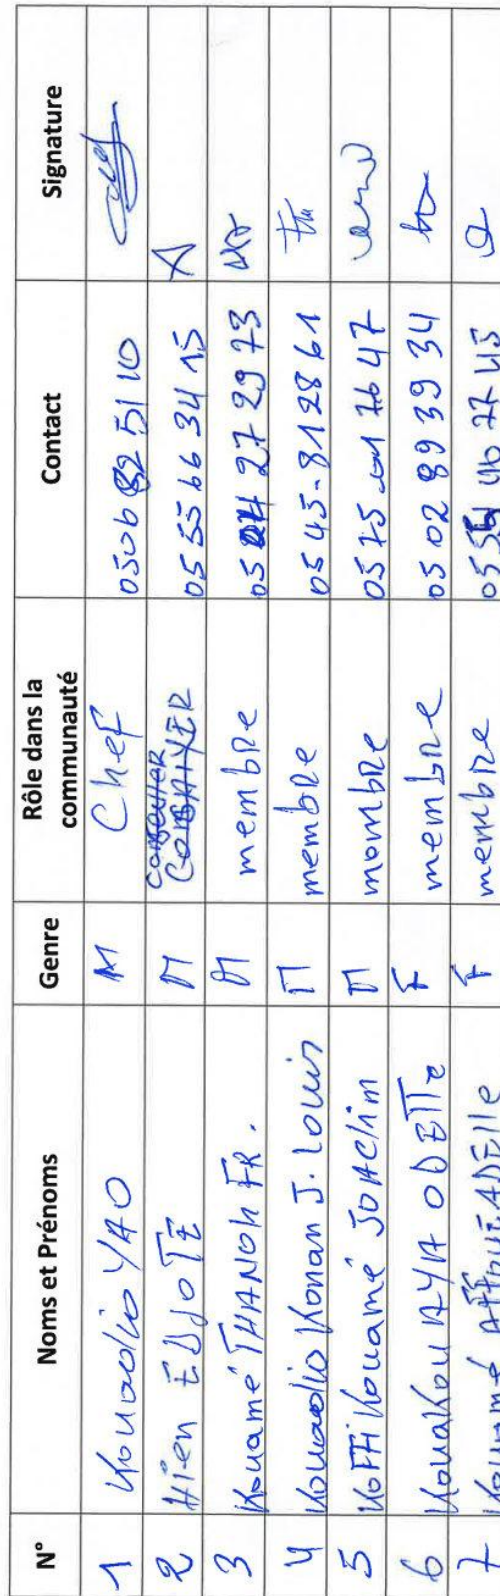 N° Noms et Prénoms Genre Rôle dans la communauté Contact Signature
1 Kouadio YAO M Chef 0506825110
2 Hien EDJOTE M Conseiller 05 55 66 34 15
3 Kouamé THANOh FR. M membre 05 04 27 29 73
4 Kouadio Konan J. Louis M membre 05 45-812861
5 KoFFi Kouamé JOAChim M mombre 0575 01 7647
6 KouaKou AYA ODETTe F membre 05 02 89 39 34
7 Kouamé AFFOUE ADELLe F membre